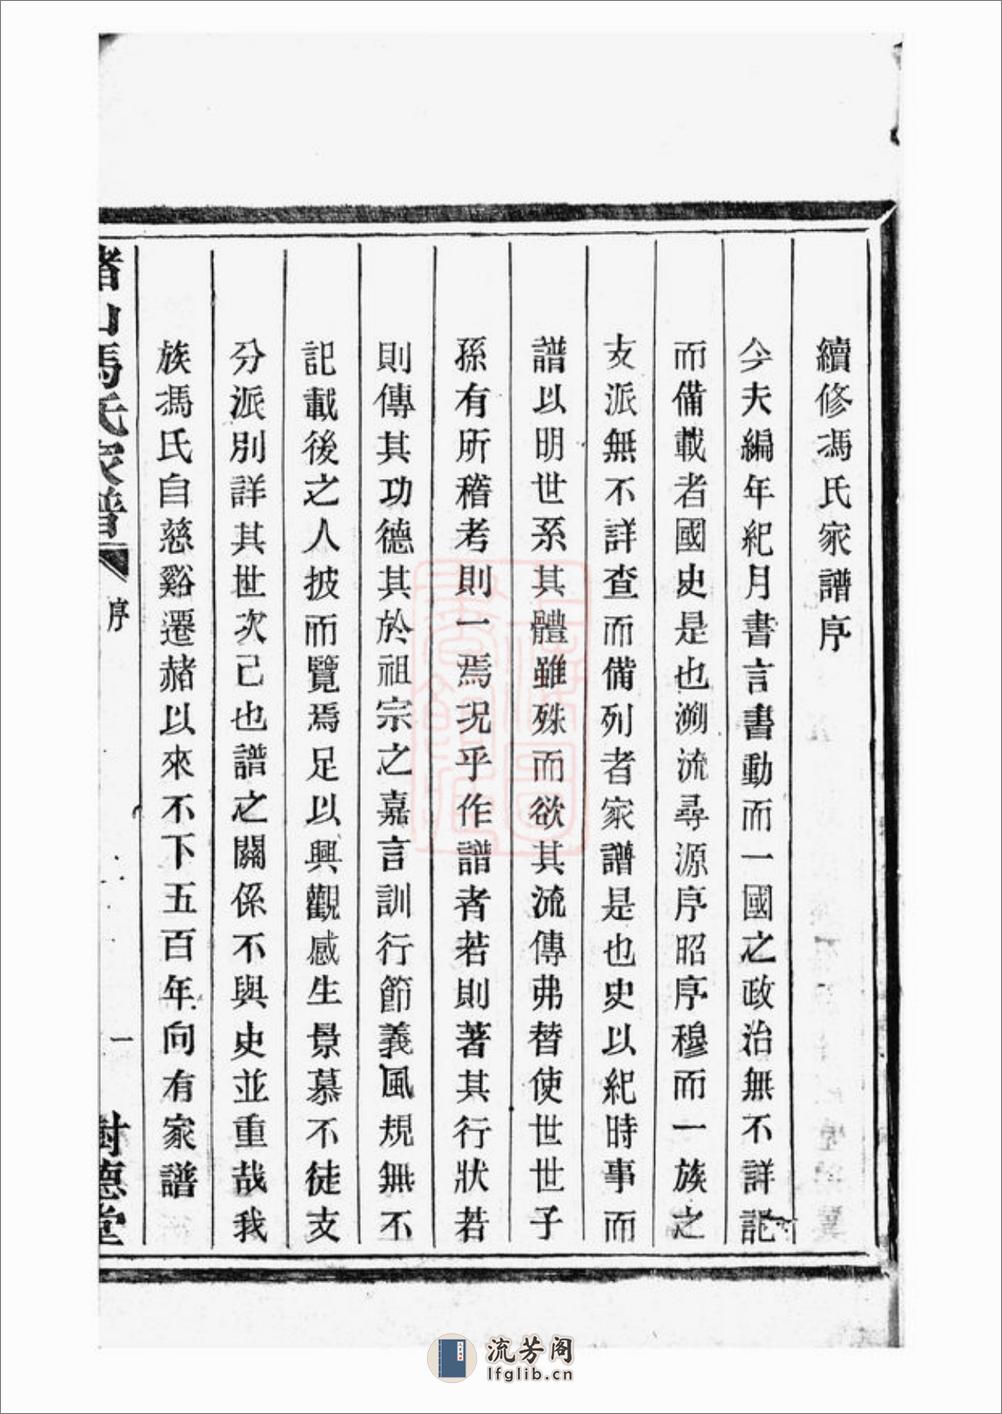 續修馮氏家譜序
今夫編年紀月書言書動而一國之政治無不詳記
而備載者國史是也溯流尋源序昭序穆而一族之
支派無不詳查而備列者家譜是也史以紀時事而
譜以明世系其體雖殊而欲其流傳弗替使世世子
孫有所稽考則一焉况乎作譜者若則著其行狀若
則傳其功德其於祖宗之嘉言訓行節義風規無不
記載後之人披而覽焉足以興觀感生景慕不徒支
分派別詳其世次已也譜之關係不與史並重哉我
族馮氏自慈谿遷赭以來不下五百年向有家譜
赭山馮氏家譜
序
一
樹德堂
流芳阁
lfglib.cn